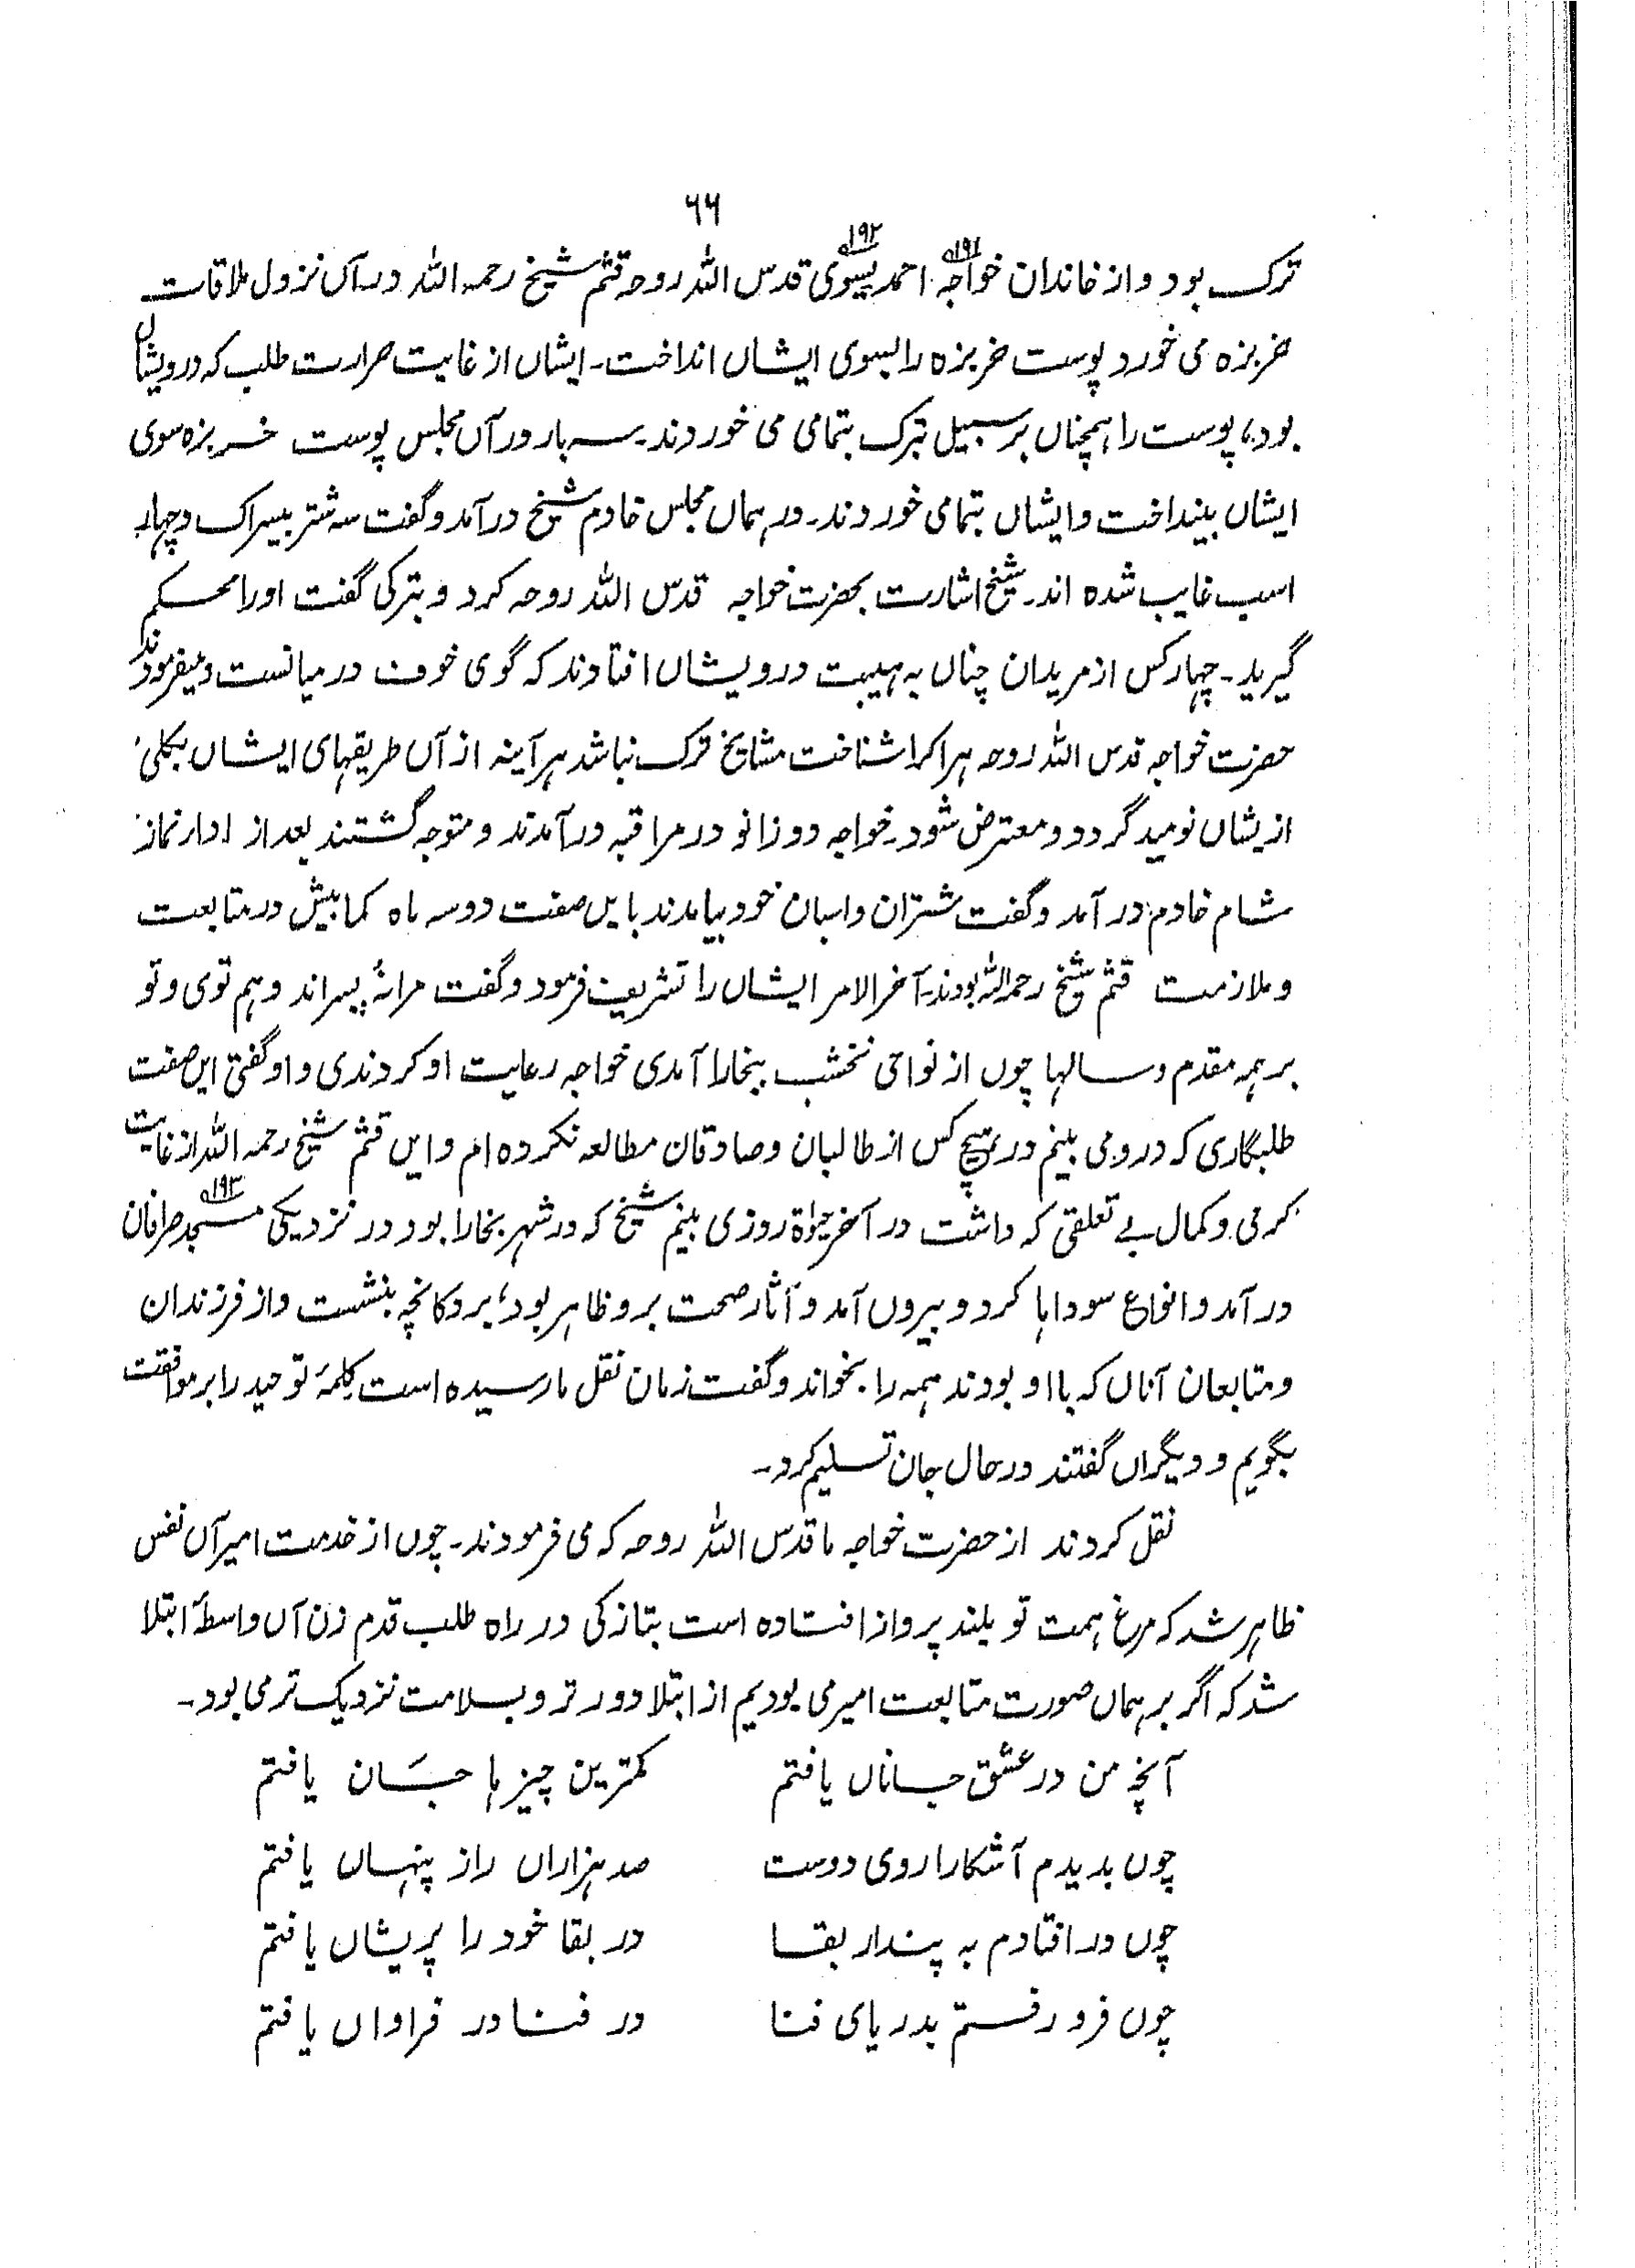 ۶۶
ترک بود و از خاندان خواجہ۱۹۱ احمد یسوی۱۹۲ قدس اللہ روحہ قثم شیخ رحمہ اللہ در آں نزول ملاقات
خربزہ می خورد پوست خربزہ را بسوی ایشاں انداخت۔ ایشاں از غایت حرارت طلب کہ درویشاں
بود، پوست را ہمچناں بر سبیل تبرک بتمامی می خوردند۔ سہ بار در آں مجلس پوست خربزہ سوی
ایشاں بینداخت و ایشاں بتمامی خوردند۔ در ہماں مجلس خادم شیخ در آمد و گفت سہ شتر بیسراک و چہار
اسب غایب شدہ اند۔ شیخ اشارت بحضرت خواجہ قدس اللہ روحہ کرد و بترکی گفت او را محکم
گیرید۔ چہار کس از مریدان چناں بہ ہیبت درویشاں افتادند کہ گوی خوف در میانست و میفرمودند
حضرت خواجہ قدس اللہ روحہ ہر اکرا شناخت مشایخ ترک نباشد ہر آینہ از آں طریقہای ایشاں بکلی
ازیشاں نومید گردد و معترض شود۔ خواجہ دو زانو در مراقبہ در آمدند و متوجہ گشتند بعد از اداء نماز
شام خادم در آمد و گفت شتران و اسبان خود بیامدند بایں صفت دو سہ ماہ کما بیش در متابعت
و ملازمت قثم شیخ رحمہ اللہ بودند۔ آخر الامر ایشاں را تشریف فرمود و گفت مرا نُہ پسراند و ہم توی و تو
بر ہمہ مقدم و سالہا چوں از نواحی نخشب ببخارا آمدی خواجہ رعایت او کردندی و او گفتی ایں صفت
طلبگاری کہ درو می بینم در ہیچ کس از طالبان و صادقان مطالعہ نکردہ ام و ایں قثم شیخ رحمہ اللہ از غایت
کرمی و کمال بے تعلقی کہ داشت در آخر حیوٰة روزی بینم شیخ کہ در شہر بخارا بود در نزدیکی مسجد صرافان۱۹۳
در آمد و انواع سوداہا کرد و بیروں آمد و آثار صحت برو ظاہر بود، بر دکانچہ بنشست و از فرزندان
و متابعان آناں کہ با او بودند ہمہ را بخواند و گفت زمان نقل ما رسیدہ است کلمۂ توحید را بر موافقت
بگویم و دیگراں گفتند در حال جان تسلیم کرد۔
نقل کردند از حضرت خواجہ ما قدس اللہ روحہ کہ می فرمودند۔ چوں از خدمت امیر آں نفس
ظاہر شد کہ مرغ ہمت تو بلند پرواز افتادہ است بتازگی در راہ طلب قدم زن آں واسطۂ ابتلا
شد کہ اگر بر ہماں صورت متابعت امیر می بودیم از ابتلا دور تر و بسلامت نزدیک تر می بود۔
آنچہ من در عشق جاناں یافتم کمترین چیزہا جَان یافتم
چوں بدیدم آشکارا روی دوست صد ہزاراں راز پنہاں یافتم
چوں در افتادم بہ پندار بقا در بقا خود را پریشاں یافتم
چوں فرو رفتم بدریای فنا در فنا در فراواں یافتم